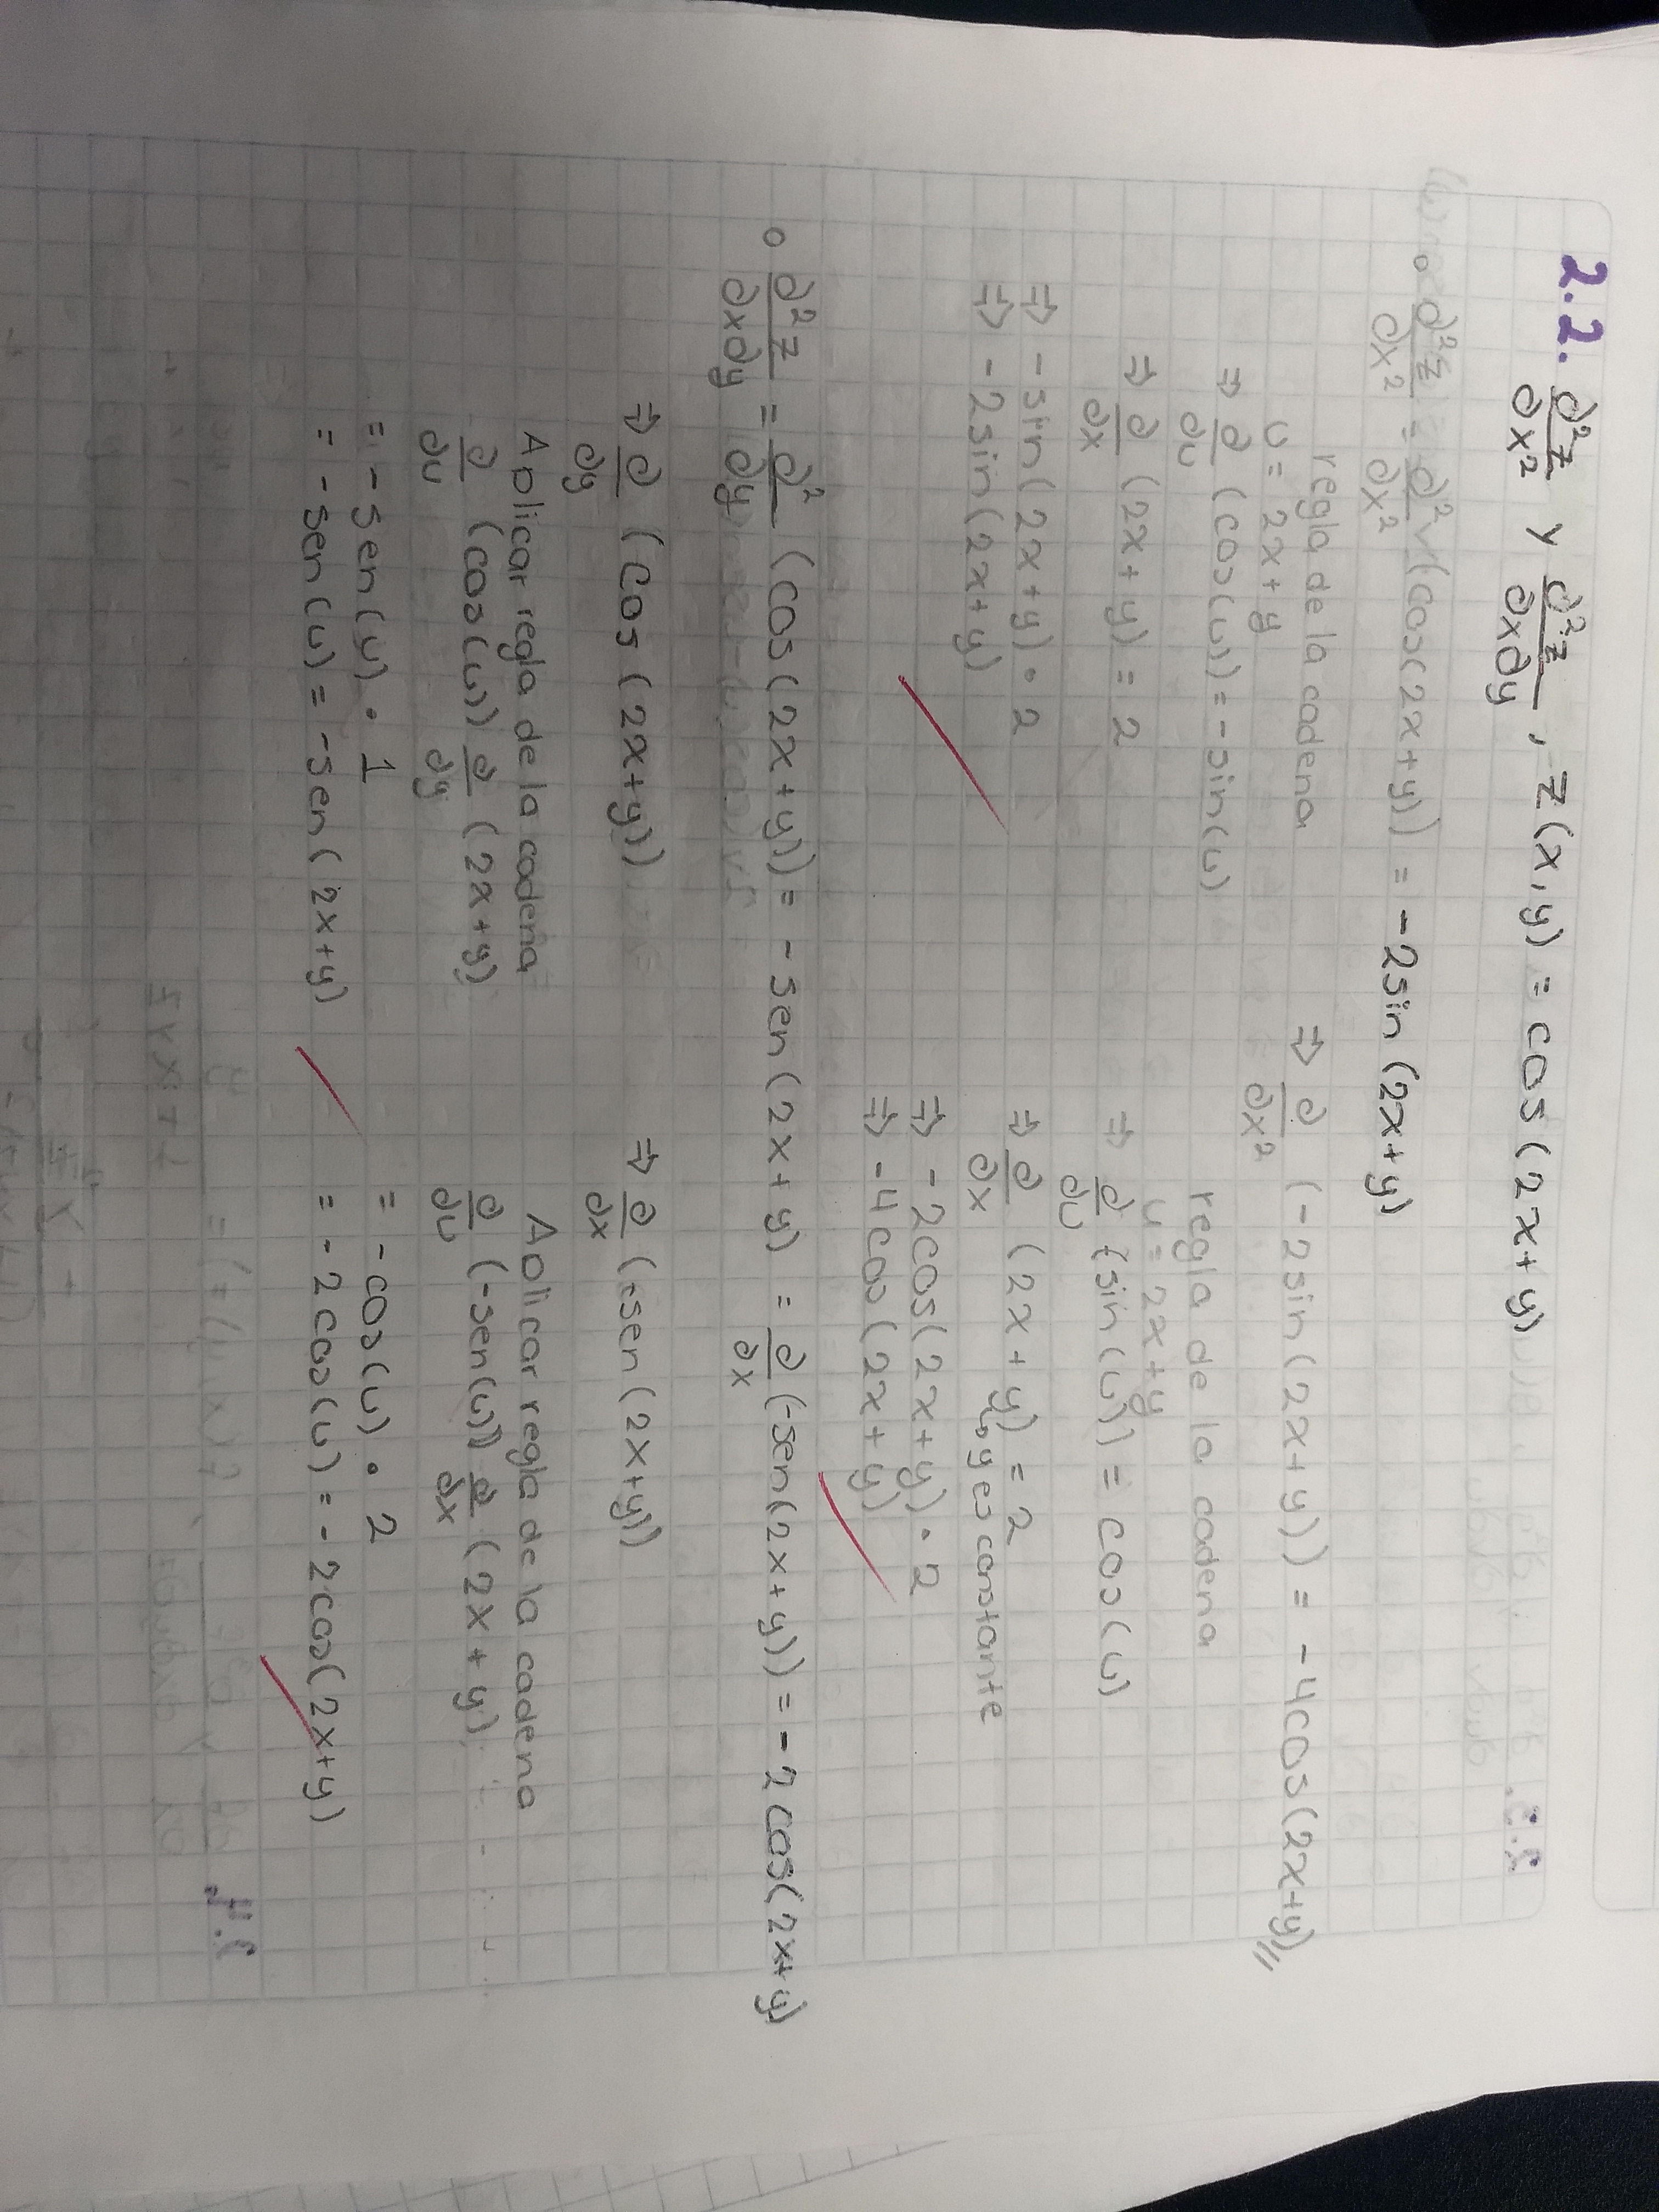 2.2. ∂²z/∂x² y ∂²z/∂x∂y, z(x,y) = cos(2x+y)
∘ ∂²z/∂x² = ∂²/∂x² (cos(2x+y)) = -2sin(2x+y)
regla de la cadena
u = 2x+y
⇒ ∂/∂u (cos(u)) = -sin(u)
⇒ ∂/∂x (2x+y) = 2
⇒ -sin(2x+y) · 2
⇒ -2sin(2x+y)
⇒ ∂/∂x² (-2sin(2x+y)) = -4cos(2x+y)//
regla de la cadena
u = 2x+y
⇒ ∂/∂u (sin(u)) = cos(u)
⇒ ∂/∂x (2x+y) = 2
↳ y es constante
⇒ -2cos(2x+y) · 2
⇒ -4cos(2x+y)
∘ ∂²z/∂x∂y = ∂²/∂y (cos(2x+y)) = -sen(2x+y) = ∂/∂x (-sen(2x+y)) = -2cos(2x+y)
⇒ ∂/∂y (cos(2x+y))
Aplicar regla de la cadena
∂/∂u (cos(u)) ∂/∂y (2x+y)
= -sen(u) · 1
= -sen(u) = -sen(2x+y)
⇒ ∂/∂x (-sen(2x+y))
Aplicar regla de la cadena
∂/∂u (-sen(u)) ∂/∂x (2x+y)
= -cos(u) · 2
= -2cos(u) = -2cos(2x+y)